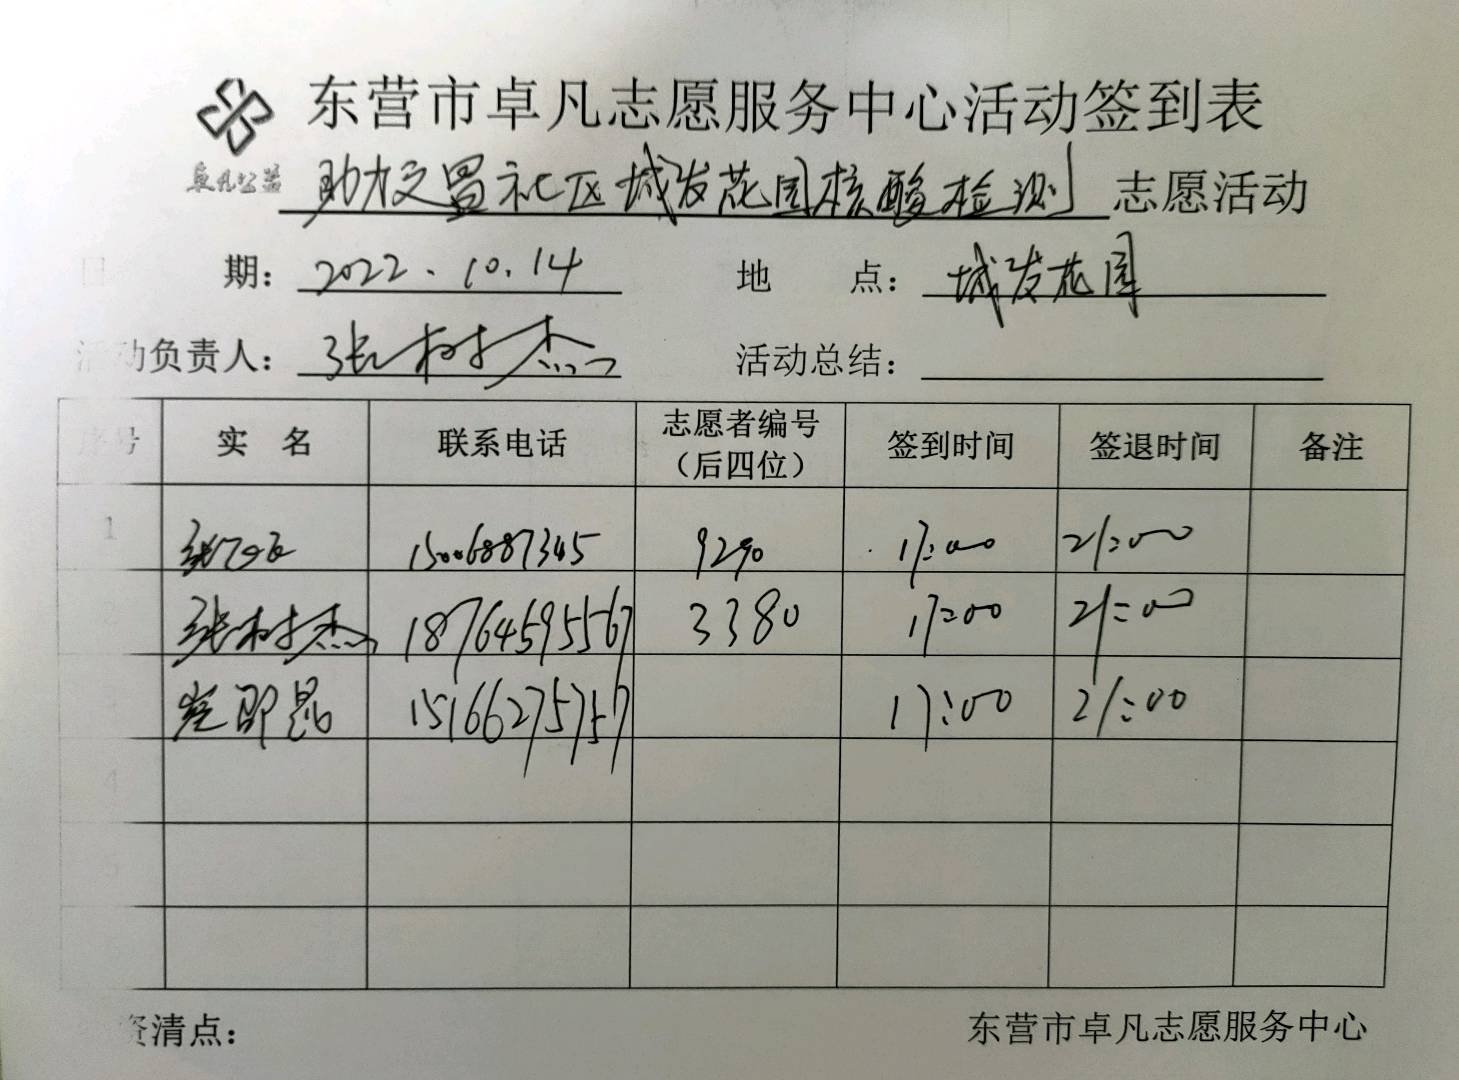 东营市卓凡志愿服务中心活动签到表
卓凡公益 助力文昌社区城发花园核酸检测 志愿活动
日 期： 2022.10.14 地 点： 城发花园
活动负责人： 张树杰 活动总结：
序号 实 名 联系电话 志愿者编号（后四位） 签到时间 签退时间 备注
1 15006887345 9290 17:00 21:00
2 张树杰 18764595567 3380 17:00 21:00
3 15166275757 17:00 21:00
4
5
6
资清点： 东营市卓凡志愿服务中心